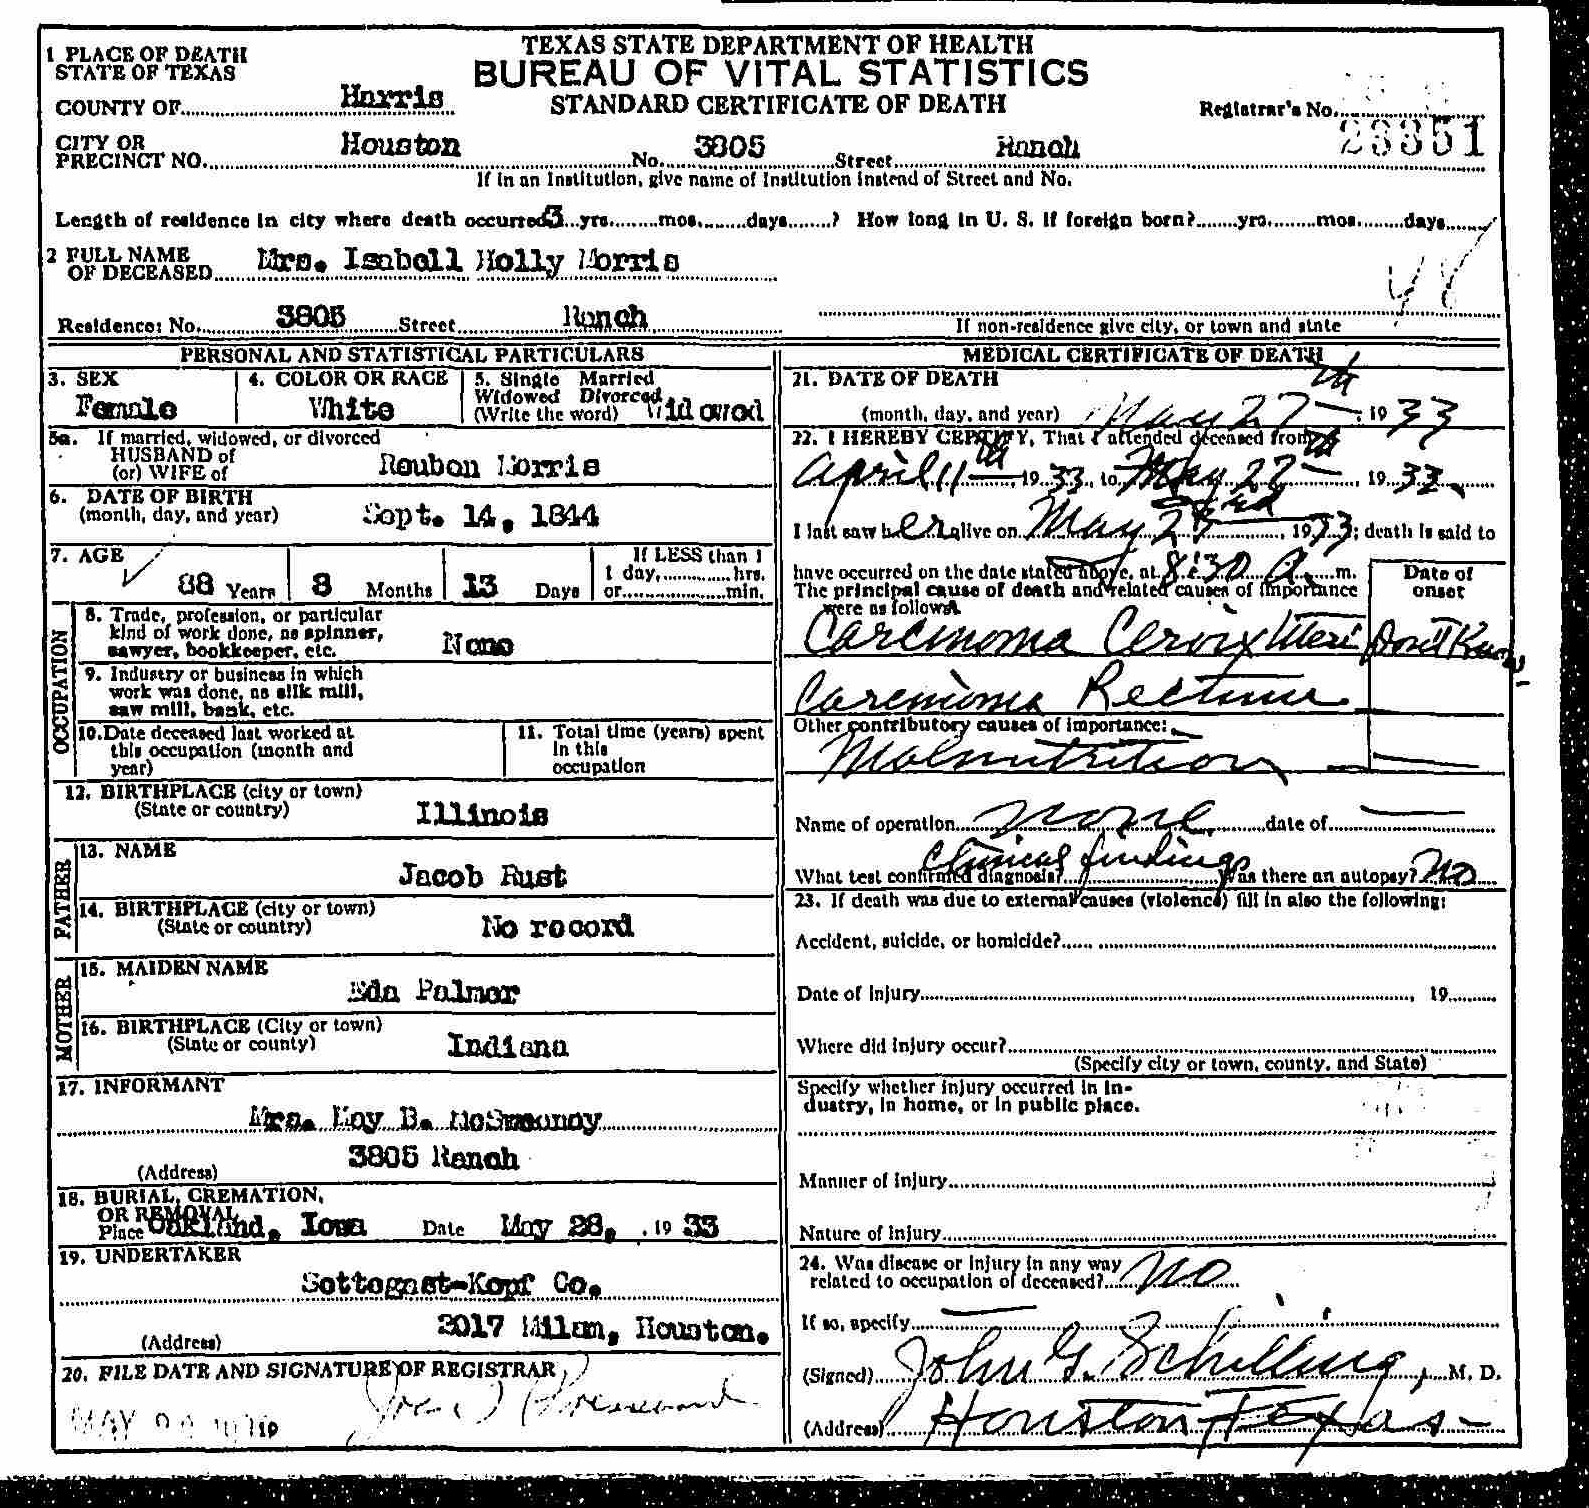 TEXAS STATE DEPARTMENT OF HEALTH
BUREAU OF VITAL STATISTICS
STANDARD CERTIFICATE OF DEATH
1 PLACE OF DEATH
STATE OF TEXAS
COUNTY OF Harris
Registrar's No.
23351
CITY OR PRECINCT NO. Houston No. 3805 Street Ranch
If in an Institution, give name of Institution instead of Street and No.
Length of residence in city where death occurred 3 yrs. mos. days ? How long in U. S. if foreign born? yrs. mos. days
2 FULL NAME OF DECEASED Mrs. Isabell Holly Morris
48
Residence: No. 3805 Street Ranch
If non-residence give city, or town and state
PERSONAL AND STATISTICAL PARTICULARS
3. SEX Female
4. COLOR OR RACE White
5. Single Married Widowed Divorced (Write the word) Widowed
5a. If married, widowed, or divorced
HUSBAND of
(or) WIFE of Reuben Morris
6. DATE OF BIRTH
(month, day, and year) Sept. 14, 1844
7. AGE 88 Years 8 Months 13 Days
If LESS than 1
1 day, hrs.
or min.
OCCUPATION
8. Trade, profession, or particular
kind of work done, as spinner,
sawyer, bookkeeper, etc. None
9. Industry or business in which
work was done, as silk mill,
saw mill, bank, etc.
10. Date deceased last worked at
this occupation (month and
year)
11. Total time (years) spent
in this
occupation
12. BIRTHPLACE (city or town)
(State or country) Illinois
FATHER
13. NAME
Jacob Rust
14. BIRTHPLACE (city or town)
(State or country) No record
MOTHER
15. MAIDEN NAME
Eda Palmer
16. BIRTHPLACE (City or town)
(State or county) Indiana
17. INFORMANT
Mrs. May B. McSweeney
(Address) 3805 Ranch
18. BURIAL, CREMATION,
OR REMOVAL
Place Oakland, Iowa Date May 28, 1933
19. UNDERTAKER
Settegast-Kopf Co.
(Address) 3017 Milam, Houston.
20. FILE DATE AND SIGNATURE OF REGISTRAR
MAY 19
MEDICAL CERTIFICATE OF DEATH
21. DATE OF DEATH
(month, day, and year) May 27th, 1933
22. I HEREBY CERTIFY, That I attended deceased from
April 11th, 1933, to May 27th, 1933.
I last saw her alive on May 23rd, 1933; death is said to
have occurred on the date stated above, at 8:30 A. m.
The principal cause of death and related causes of importance
were as follows:
Date of onset
Carcinoma Cervix Uteri Don't Know
Carcinoma Rectum
Other contributory causes of importance:
Malnutrition
Name of operation none date of
What test confirmed diagnosis? Clinical findings Was there an autopsy? No
23. If death was due to external causes (violence) fill in also the following:
Accident, suicide, or homicide?
Date of injury , 19
Where did injury occur?
(Specify city or town, county, and State)
Specify whether injury occurred in in-
dustry, in home, or in public place.
Manner of injury
Nature of injury
24. Was disease or injury in any way
related to occupation of deceased? No
If so, specify
(Signed) John G. Schilling, M. D.
(Address) Houston Texas